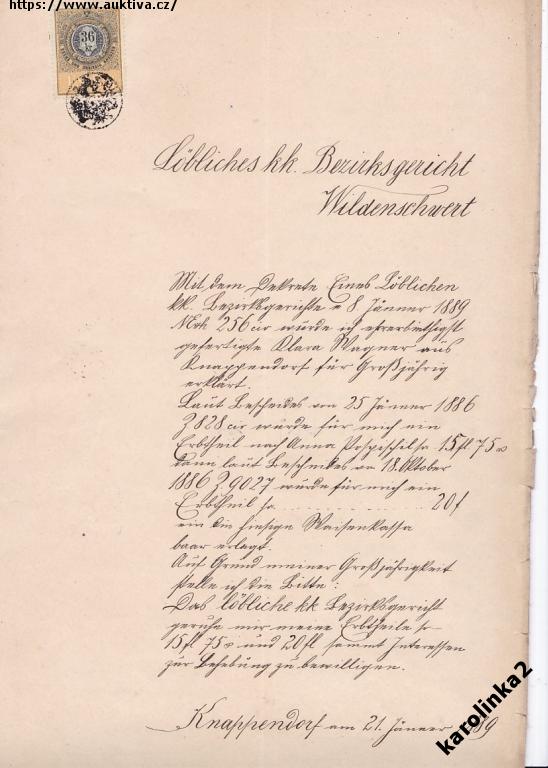 https://www.auktiva.cz/
36
kr
Löbliches kk. Bezirksgericht
Wildenschwert
Mit dem Dekrete Eines Löblichen
kk. Bezirksgerichte 8 Jänner 1889
256 civ wurde ich ehrerbiethigst
gefertigte Klara Wagner aus
Knappendorf für Großjährig
erklärt.
Laut Bescheides vom 25 Jänner 1886
Z 828 civ wurde für mich ein
Erbtheil nach Anna Pospischil 15 fl 75
dann laut Bescheides 18. Oktober
1886 Z 9027 wurde für mich ein
Erbtheil 20 f
hiesige Waisenkassa
baar erlegt.
Auf Grund meiner Großjährigkeit
stelle ich die Bitte:
Das löbliche kk Bezirksgericht
geruhe mir meine Erbtheile
15 fl 75 und 20 fl sammt Interessen
zur Behebung zu bewilligen.
Knappendorf am 21. Jänner 889
karolinka2